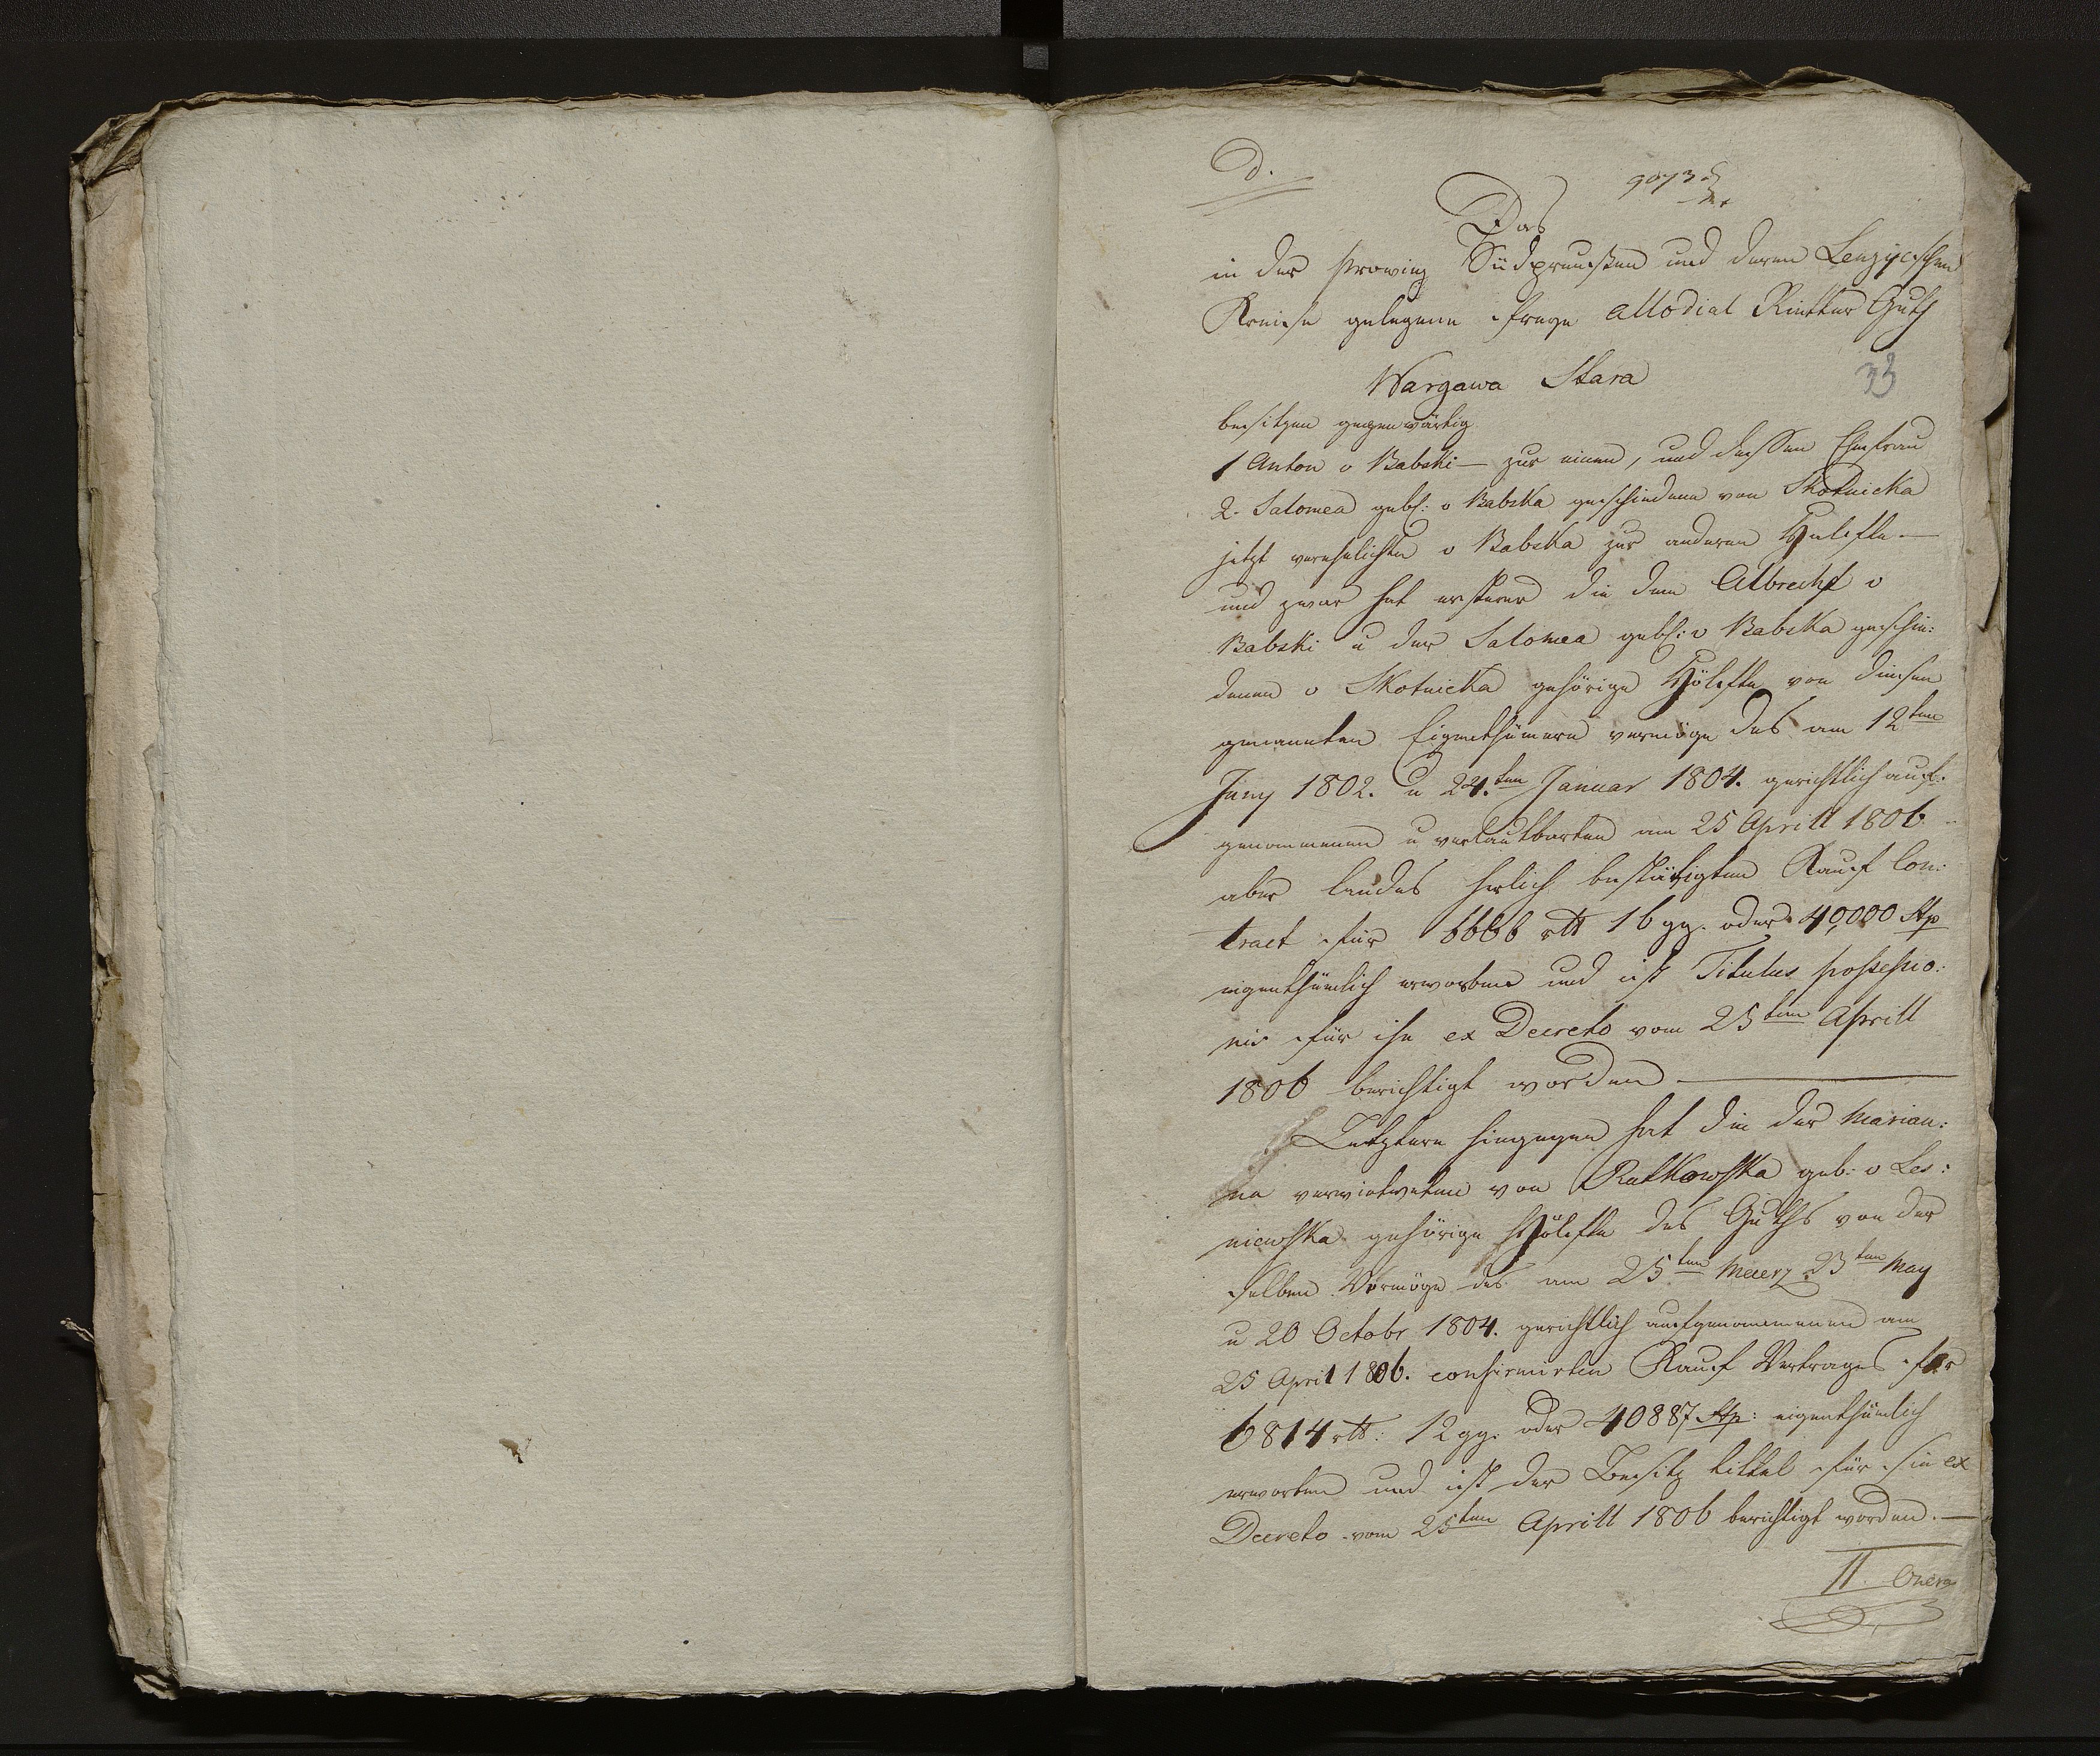 D.
9073
Das
in der Provinz Südpreußen und deren Lenzycschen
Kreise gelegene freye Allodial Ritter Guth
Wargawa Stara
33
besitzen gegenwärtig
1 Anton v Babski — zur einen, und dessen Ehefrau
2. Salomea gebh: v Babska geschiedene von Skotnicka
jetzt verehelichte v Babska zur anderen Helefte —
und zwar hat ersterer die dem Albrecht v
Babski u der Salomea gebh: v Babska geschie:
denen v Skotnicka gehörige Hölefte von diesen
genannten Eigenthümern vermöge des am 12ten
Juny 1802. u 24.ten Januar 1804. gerichtlich auf:
genommenen u verlautbarten am 25 Aprill 1806
aber landes herlich bestätigten Kauf Con:
tract für 6666 rtt 16 gg. oder 40,000 flp
eigenthümlich erworben und ist Titulus possessio:
nis für ihn ex Decreto vom 25ten Aprill
1806 berichtigt worden —
Letztere hingegen hat die der Marian:
na verwietweten von Rutkowska geb: v Les:
niewska gehörige Hölefte des Guths von der
selben Vermöge des am 25ten Maerz 23ten May
u 20 Octobr 1804. gerichtlich aufgenommenen am
25 April 1806. confirmirten Kauf Vertrages für
6814 rtt: 12 gg. oder 40887 flp: eigenthümlich
erworben und ist der Besitz tittel für sie ex
Decreto vom 25ten Aprill 1806 berichtigt worden. —
II. Onera